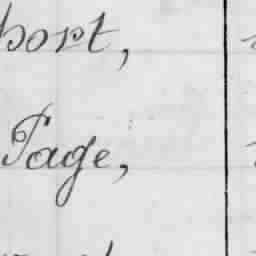 port,
Page,